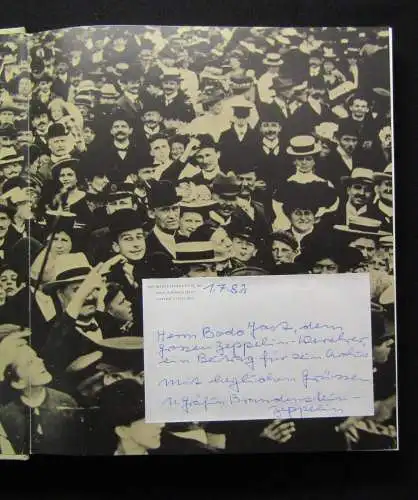 1.7.83
Herrn Bodo Jost, dem
grossen Zeppelin-Verehrer
ein Beitrag für sein Archiv
mit herzlichen Grüssen
Gräfin Brandenstein-
Zeppelin